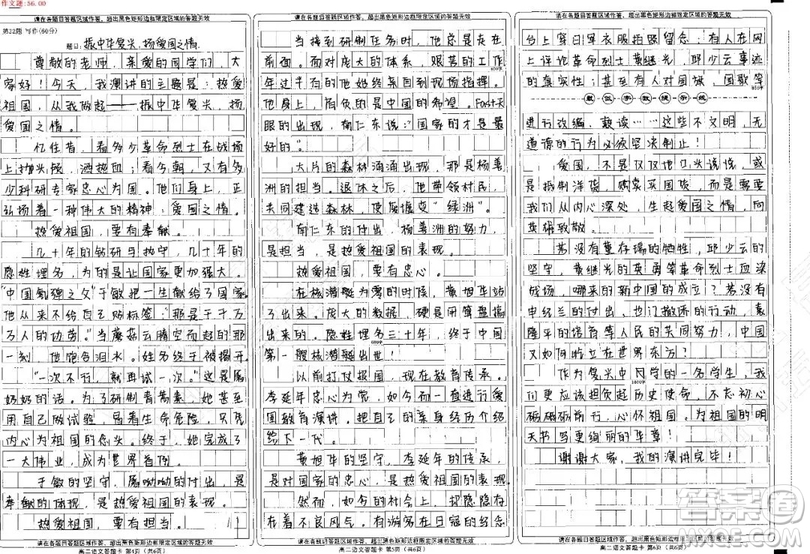 作文题:56.00
请在各题目答题区域作答，超出黑色矩形边框限定区域的答题无效
第22题 写作(60分)
题目：振中华复兴，扬爱国之情
尊敬的老师，亲爱的同学们，大
家好！今天，我演讲的主题是：热爱
祖国，从我做起——振中华复兴，扬
爱国之情。
忆往昔，看多少革命烈士在战场
上抛头颅，洒热血；看今朝，又有多
少科研专家忠心为国。他们身上，正
弘扬着一种伟大的精神：爱国之情。
热爱祖国，要有奉献。
几十年的钻研与执守，几十年的
隐姓埋名，为的是让国家更加强大。
“中国氢弹之父”于敏把一生献给了国家。
他从来不给自己贴标签：那是千千万
万人的功劳。当蘑菇云腾空而起的那
一刻，他饱含泪水。
“一次不行，就再试一次。”这是屠
奶奶的话。为了研制青蒿素，她甚至
用自己做试验，冒着生命危险，只凭
内心为祖国的忠诚。终于，她完成了
一大伟业，成为世界首例。
于敏的坚守，屠呦呦的付出，是
奉献的体现，是热爱祖国的表现。
热爱祖国，要有担当。
请在各题目答题区域作答，超出黑色矩形边框限定区域的答题无效
高二语文答题卡 第4页（共6页）
请在各题目答题区域作答，超出黑色矩形边框限定区域的答题无效
当接到研制任务时，他总是走在
前面。面对庞大的体系，艰苦的工作
年过半百的他始终亲自到现场指挥。
他肩上，肩负的是中国的希望。Fast天
眼的出现，南仁东说：“国家的才是最
好的”
大片的森林涌涌出现，那是杨善
洲的担当。退休之后，他带领村民，
共同建造森林，使荒堰变“绿洲”。
南仁东的付出，杨善洲的努力，
是担当，是热爱祖国的表现。
热爱祖国，要有忠心。
在核潜艇为零的时候，黄旭华站
了出来。庞大的数据，都是用算盘算
出来的，隐姓埋名三十年，终于中国
第一艘核潜艇出世！
以前打仗报国，现今教育传承。
李延年忠心为党，如今而一直进行爱
国教育演讲，把自己的亲身经历介绍
给下一代。
黄旭华的坚守，李延年的传承，
是对国家的忠心，是热爱祖国的表现。
然而，如今的社会上，把隐隐存
在着不良风气。有游客在日军的纪念
请在各题目答题区域作答，超出黑色矩形边框限定区域的答题无效
高二语文答题卡 第5页（共6页）
请在各题目答题区域作答，超出黑色矩形边框限定区域的答题无效
台上穿日军衣服拍照留念；有人在网
上诽论革命烈士黄继光，邱少云事迹
的真实性；甚至有人对国徽、国歌等
进行改编，亵渎……这些不文明，无
道德的行为必须坚决制止！
爱国，不是仅仅地口头谈谈，或
是抵制洋货，购买英国货，而是需要
我们从内心深处，生起爱国之情，向
英雄致敬。
若没有董存瑞的牺牲，邱少云的
坚守，黄继光的英勇等革命烈士血染
战场，哪来的新中国的成立？若没有
申纪兰的付出，也门撤侨的行动，袁
隆平的培育等人民的共同努力，中国
又如何屹立在世界东方！
作为复兴中同学的一名学生，我
们更应该担负起历史使命，不忘初心
砥砺前行，心怀祖国，为祖国的明
天书写更绚丽的华章！
谢谢大家，我的演讲完毕！
请在各题目答题区域作答，超出黑色矩形边框限定区域的答题无效
高二语文答题卡 第6页（共6页）